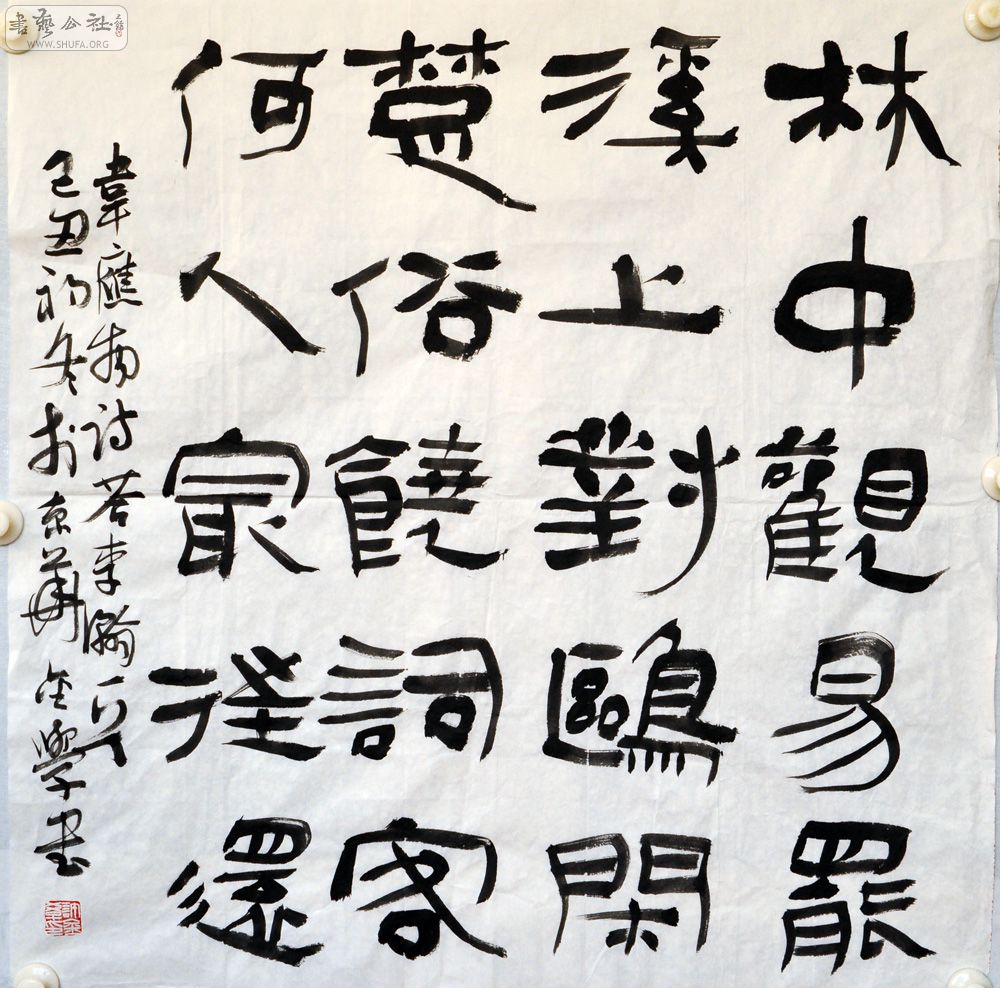 書藝公社
WWW.SHUFA.ORG
林中觀易罷
溪上對鷗閑
楚俗饒詞客
何人冣徃還
韋應物诗答李瀚一首
己丑初冬於京華金學書